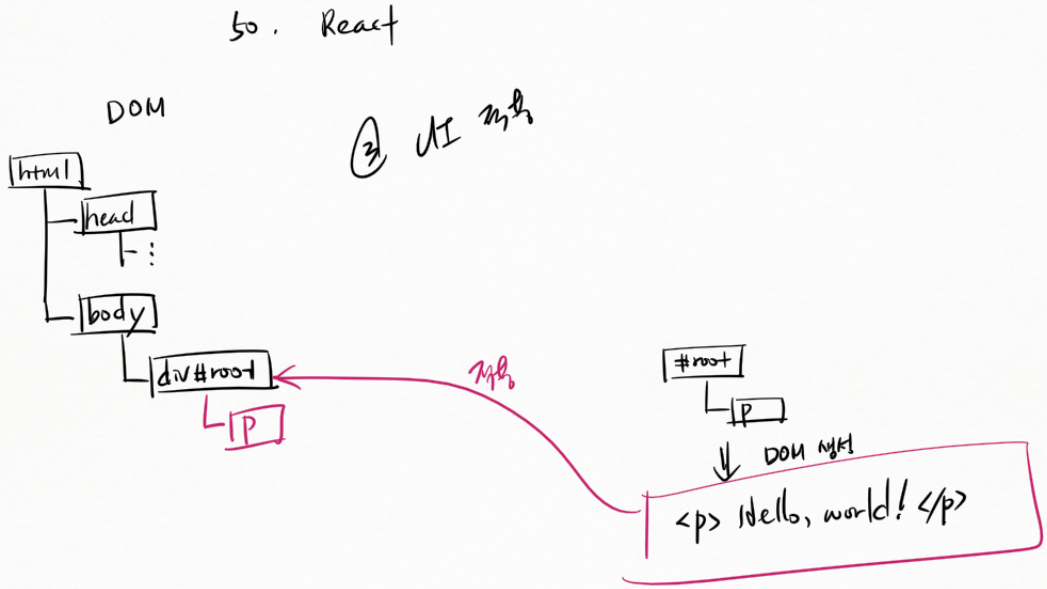 50. React
DOM
③ UI 적용
html
head
⋮
body
div#root
적용
p
#root
p
DOM 생성
<p> Hello, world! </p>